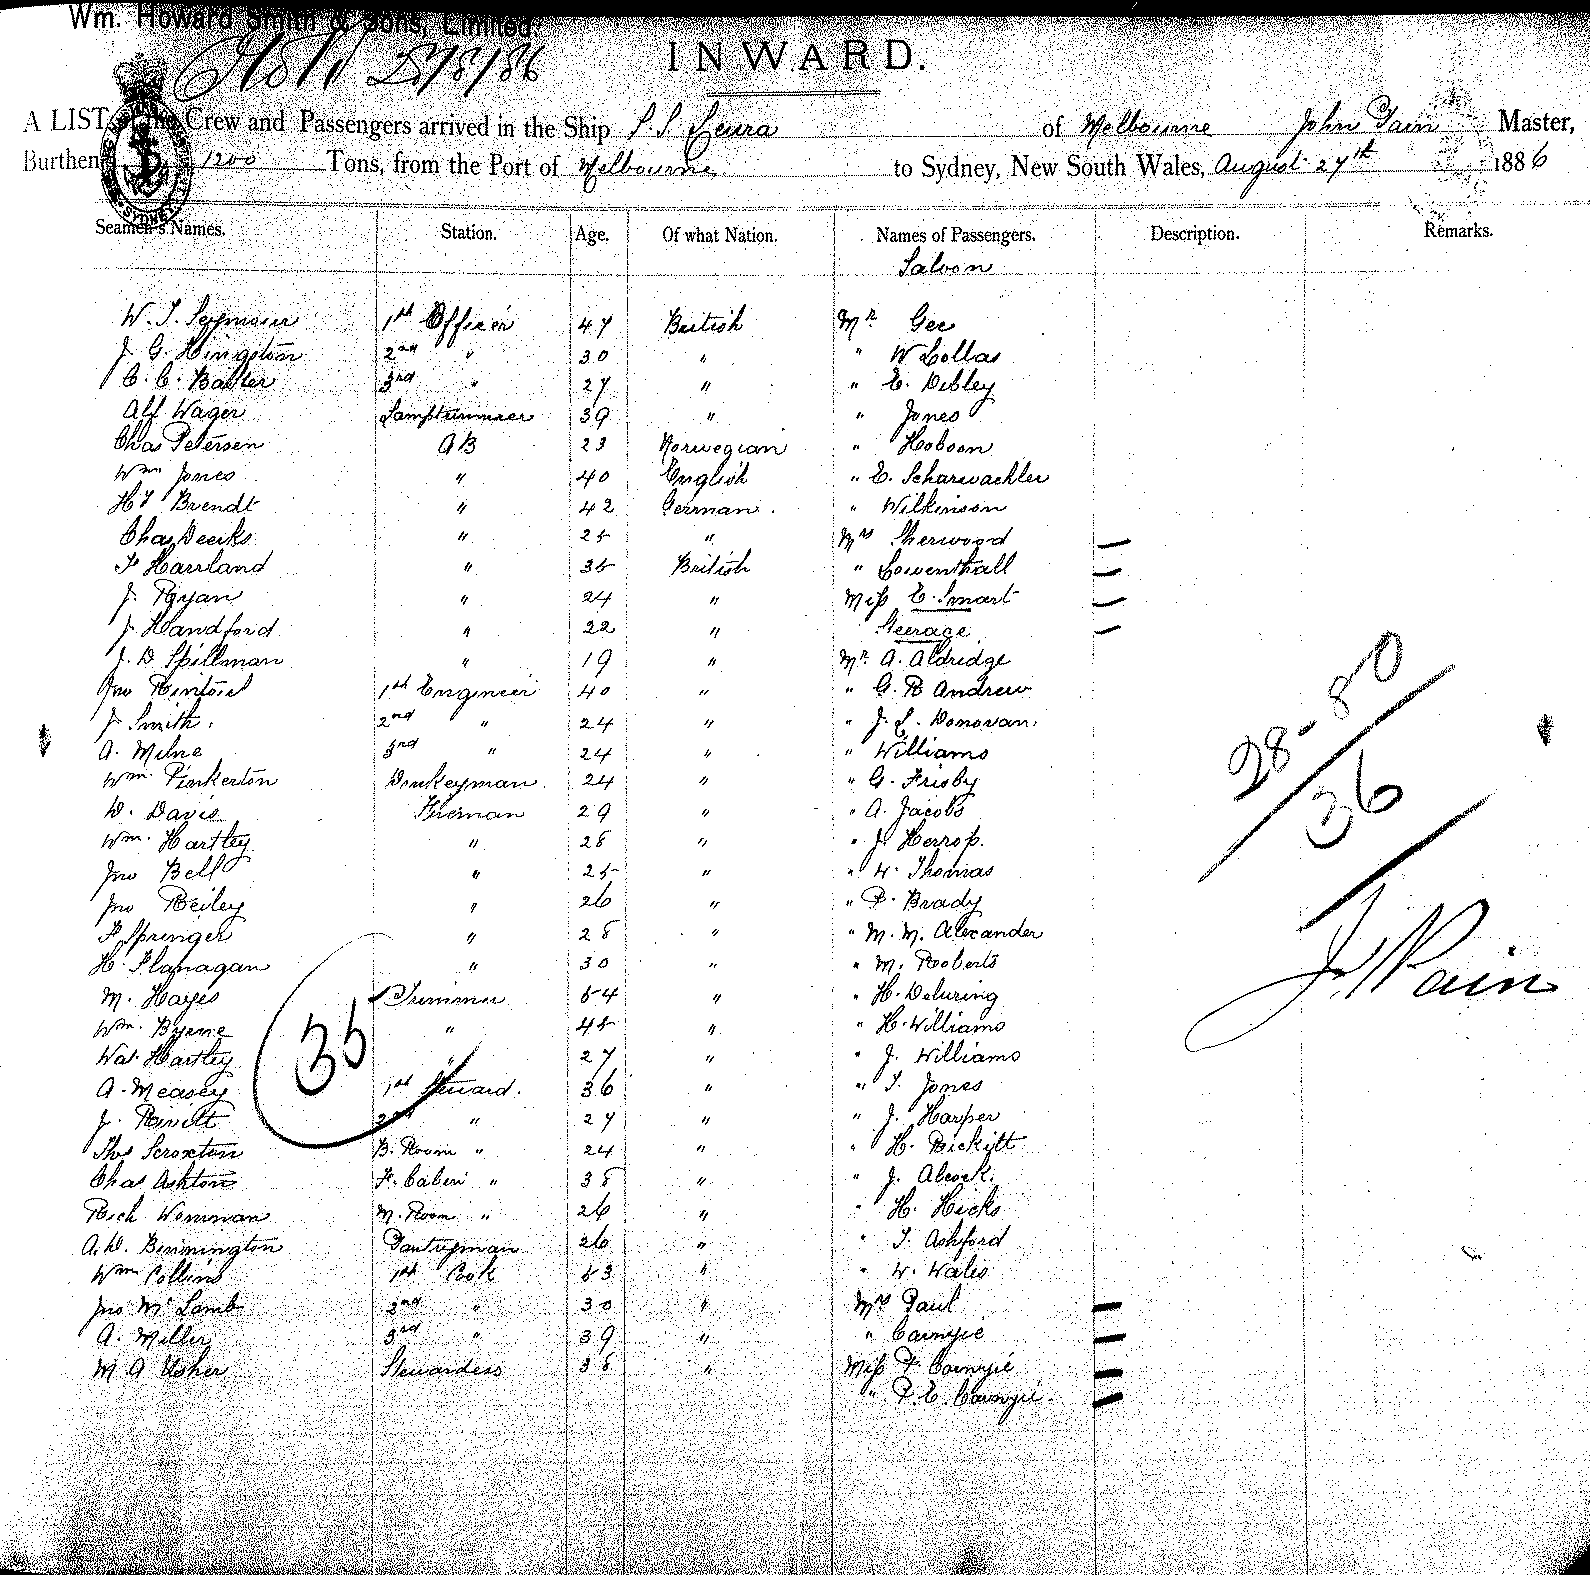 Wm. Howard Smith & Sons, Limited.
INWARD.
A LIST of the Crew and Passengers arrived in the Ship S.S. Leura of Melbourne John Pain Master,
Burthen 1200 Tons, from the Port of Melbourne to Sydney, New South Wales, August 27th 1886
SYDNEY
Seamen's Names. Station. Age. Of what Nation. Names of Passengers. Description. Remarks.
Saloon
W. S. Seymour 1st Officer 47 British Mr Gee
J. G. Kingston 2nd " 30 " " W Lollas
C. C. Baxter 3rd " 27 " " E. Dibley
Alf Wager Lamptrimmer 39 " " Jones
Chas Petersen AB 23 Norwegian " Hobson
Wm Jones " 40 English " E. Scharwachler
Hy Brendt " 42 German " Wilkinson
Chas Deeks " 25 " Mrs Sherwood
F Harrland " 35 British " Lowenthall
J. Ryan " 24 " Miss E. Smart
J Handford " 22 " Steerage
J. D Spillman " 19 " Mr. A. Aldridge
Jno Rintoul 1st Engineer 40 " " G. R Andrew
J Smith 2nd " 24 " " J. L. Donovan
A. Milne 3rd " 24 " " Williams
Wm. Pinkerton Donkeyman 24 " " G. Frisby
D. Davis Fireman 29 " " A. Jacobs
Wm. Hartley " 28 " " J. Herrop.
Jno Bell " 25 " " W. Thomas
Jno Reiley " 26 " " P. Brady
F Springer " 28 " " M. M. Alexander
H. Flanagan " 30 " " M. Roberts
M. Hayes Trimmer 54 " " H. Deluring
Wm. Byrne " 45 " " H. Williams
Wal. Hartley " 27 " " J. Williams
A. Measey 1st Steward. 36 " " T. Jones
J. Rivett 2nd " 27 " " J. Harper
Thos Scroxton B. Room " 24 " " H. Rickitt
Chas Ashton F. Cabin " 38 " " J. Alcock.
Rich Wenman M. Room " 26 " " H. Hicks
A. D. Bennington Pantryman 26 " " T. Ashford
Wm Collins 1st Cook 53 " " W. Wales
Jno McLamb 2nd " 30 " Mrs Paul
A. Miller 3rd " 39 " " Carnyie
M A Usher Stewardess 38 " Miss F. Carnyie
" P. E. Carnyie
35
28-80
36
Jn Pain